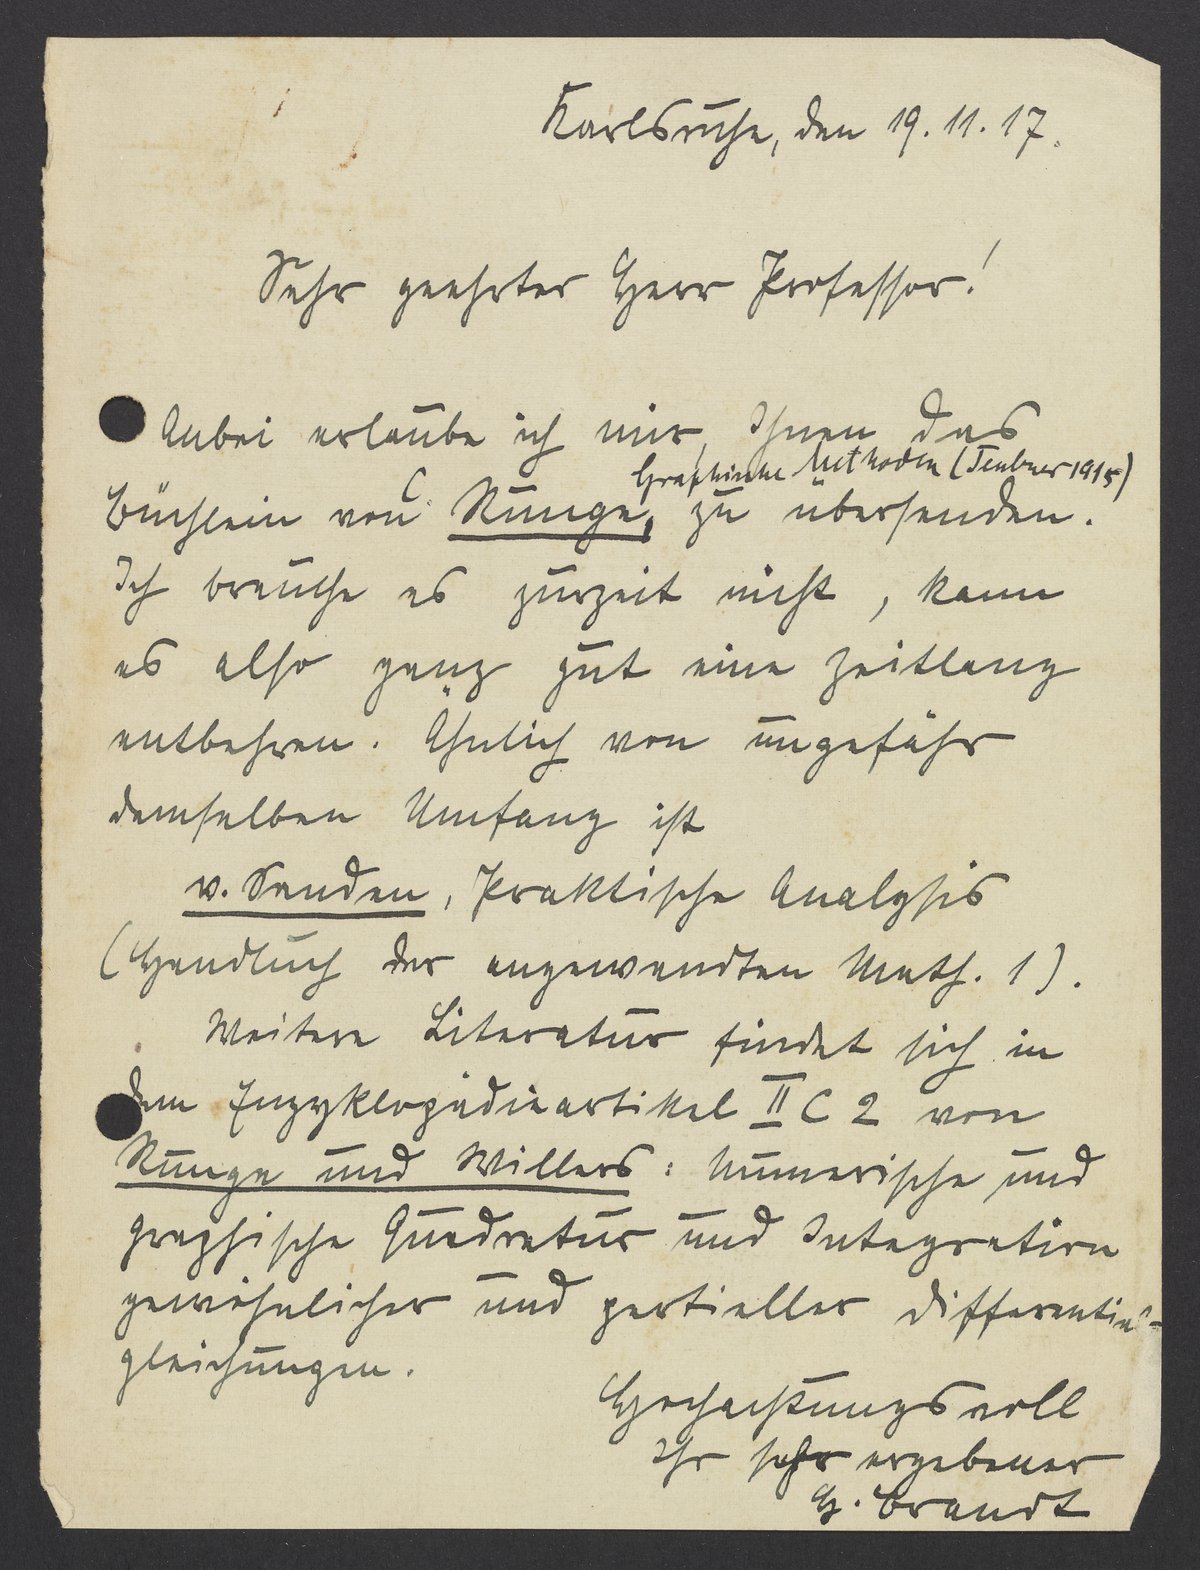 Karlsruhe, den 19. 11. 17.
Sehr geehrter Herr Professor!
Anbei erlaube ich mir, Ihnen das
Graphische Methoden (Teubner 1915)
Büchlein von C Runge, zu übersenden.
Ich brauche es zurzeit nicht, kann
es also ganz gut eine Zeitlang
entbehren. Ähnlich von ungefähr
demselben Umfang ist
v. Sanden, Praktische Analysis
(Handbuch der angewandten Math. 1).
Weitere Literatur findet sich in
dem Enzyklopädieartikel II C 2 von
Runge und Willers: Numerische und
graphische Quadratur und Integration
gewöhnlicher und partieller Differential-
gleichungen.
Hochachtungsvoll
Ihr sehr ergebener
H. Brandt